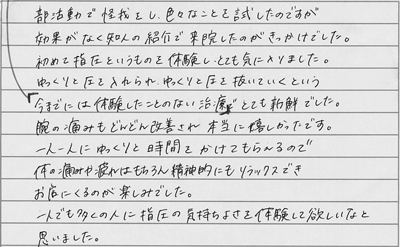 部活動で怪我をし、色々なことを試したのですが
効果がなく知人の紹介で来院したのがきっかけでした。
初めて指圧というものを体験し、とても気に入りました。
ゆっくりと圧を入れられ、ゆっくりと圧を抜いていくという
今までには体験したことのない治療でとても新鮮でした。
腕の痛みもどんどん改善され本当に嬉しかったです。
一人一人にゆっくりと時間をかけてもらえるので
体の痛みや疲れはもちろん精神的にもリラックスでき
お店にくるのが楽しみでした。
一人でも多くの人に指圧の気持ちよさを体験して欲しいなと
思いました。